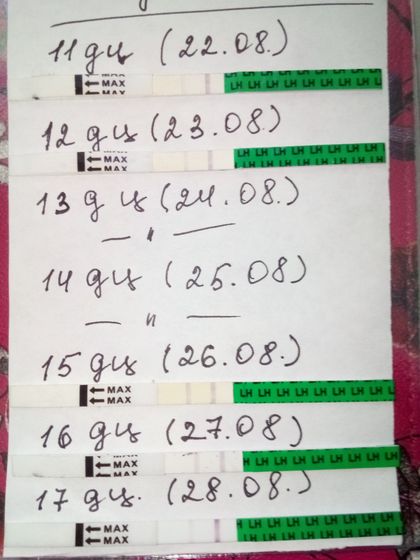 11 дц (22.08.)
MAX
MAX
LH LH LH LH LH LH
12 дц (23.08.)
MAX
MAX
LH LH LH LH LH LH
13 дц (24.08.)
— " —
14 дц (25.08)
— " —
15 дц (26.08.)
MAX
MAX
LH LH LH LH LH LH
16 дц (27.08.)
MAX
MAX
LH LH LH LH LH LH
17 дц. (28.08.)
MAX
MAX
LH LH LH LH LH LH